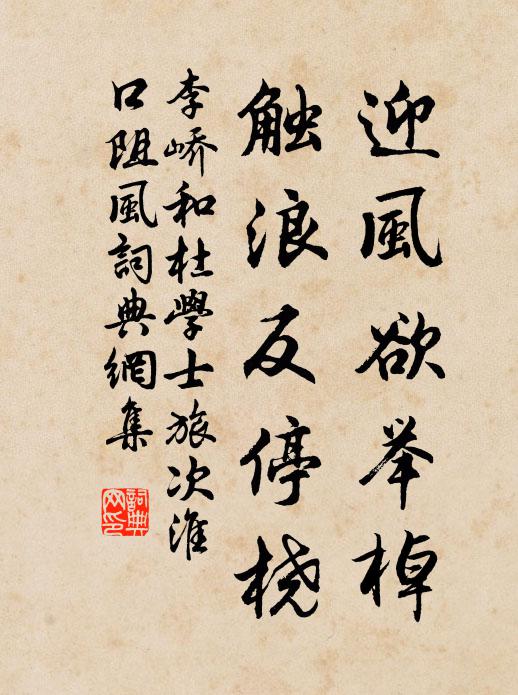 迎風欲举棹
触浪反停桡
李峤和杜學士旅次淮
口阻風詞典網集
詞典
网印